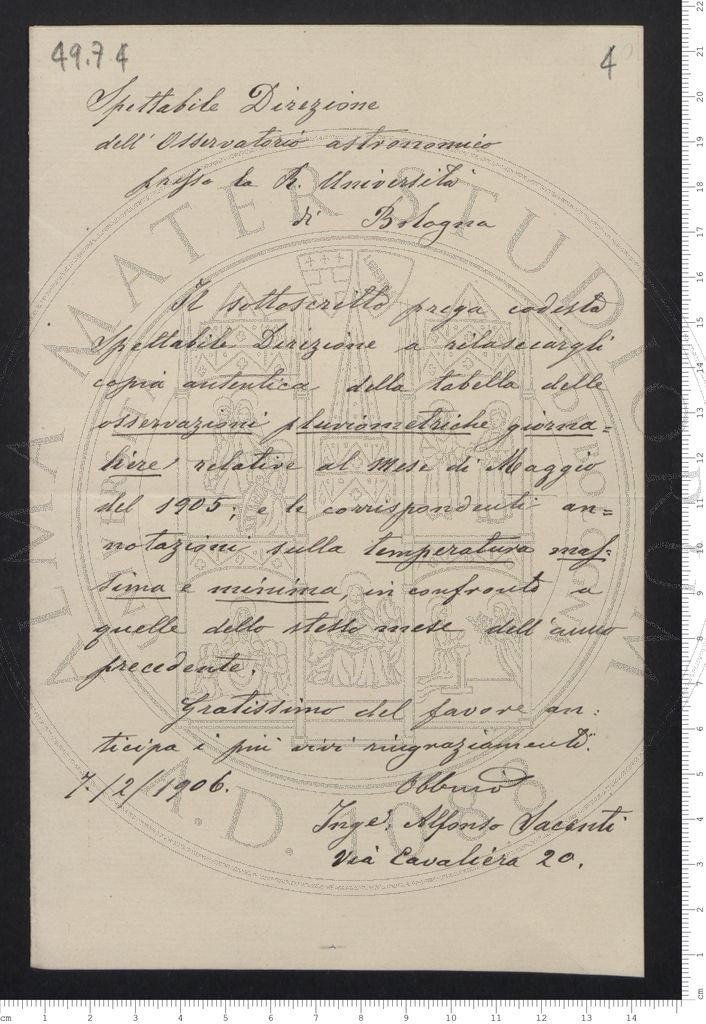 49.7 4
4
Spettabile Direzione
dell' Osservatorio astronomico
presso la R. Università
di Bologna
Il sottoscritto prega codesta
Spettabile Direzione a rilasciargli
copia autentica della tabella delle
osservazioni pluviometriche giorna=
liere relative al mese di Maggio
del 1905; e le corrispondenti an=
notazioni sulla temperatura mas=
sima e minima, in confronto a
quelle dello stesso mese dell'anno
precedente.
Gratissimo del favore an=
ticipa i più vivi ringraziamenti.
7/2/1906.
Obbmo
Inge. Alfonso Sacenti
Via Cavaliera 20.
ALMA MATER STUDIORUM
A.D. 1088